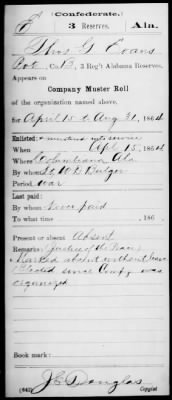 (Confederate.)
E 3 Reserves. Ala.
Thos G Evans
Pvt, Co. B, 3 Reg't Alabama Reserves.
Appears on
Company Muster Roll
of the organization named above,
for April 15 to Aug 31, 1864
Enlisted: & mustered into service
When Apl 15, 1864
Where Columbiana Ala
By whom W D Bulger
Period war
Last paid:
By whom Never paid
To what time , 186 .
Present or absent Absent
Remarks: Justice of the Peace
Marked absent without leave
Elected since Compy was
organized
Book mark:
J C Douglas
(642) Copyist